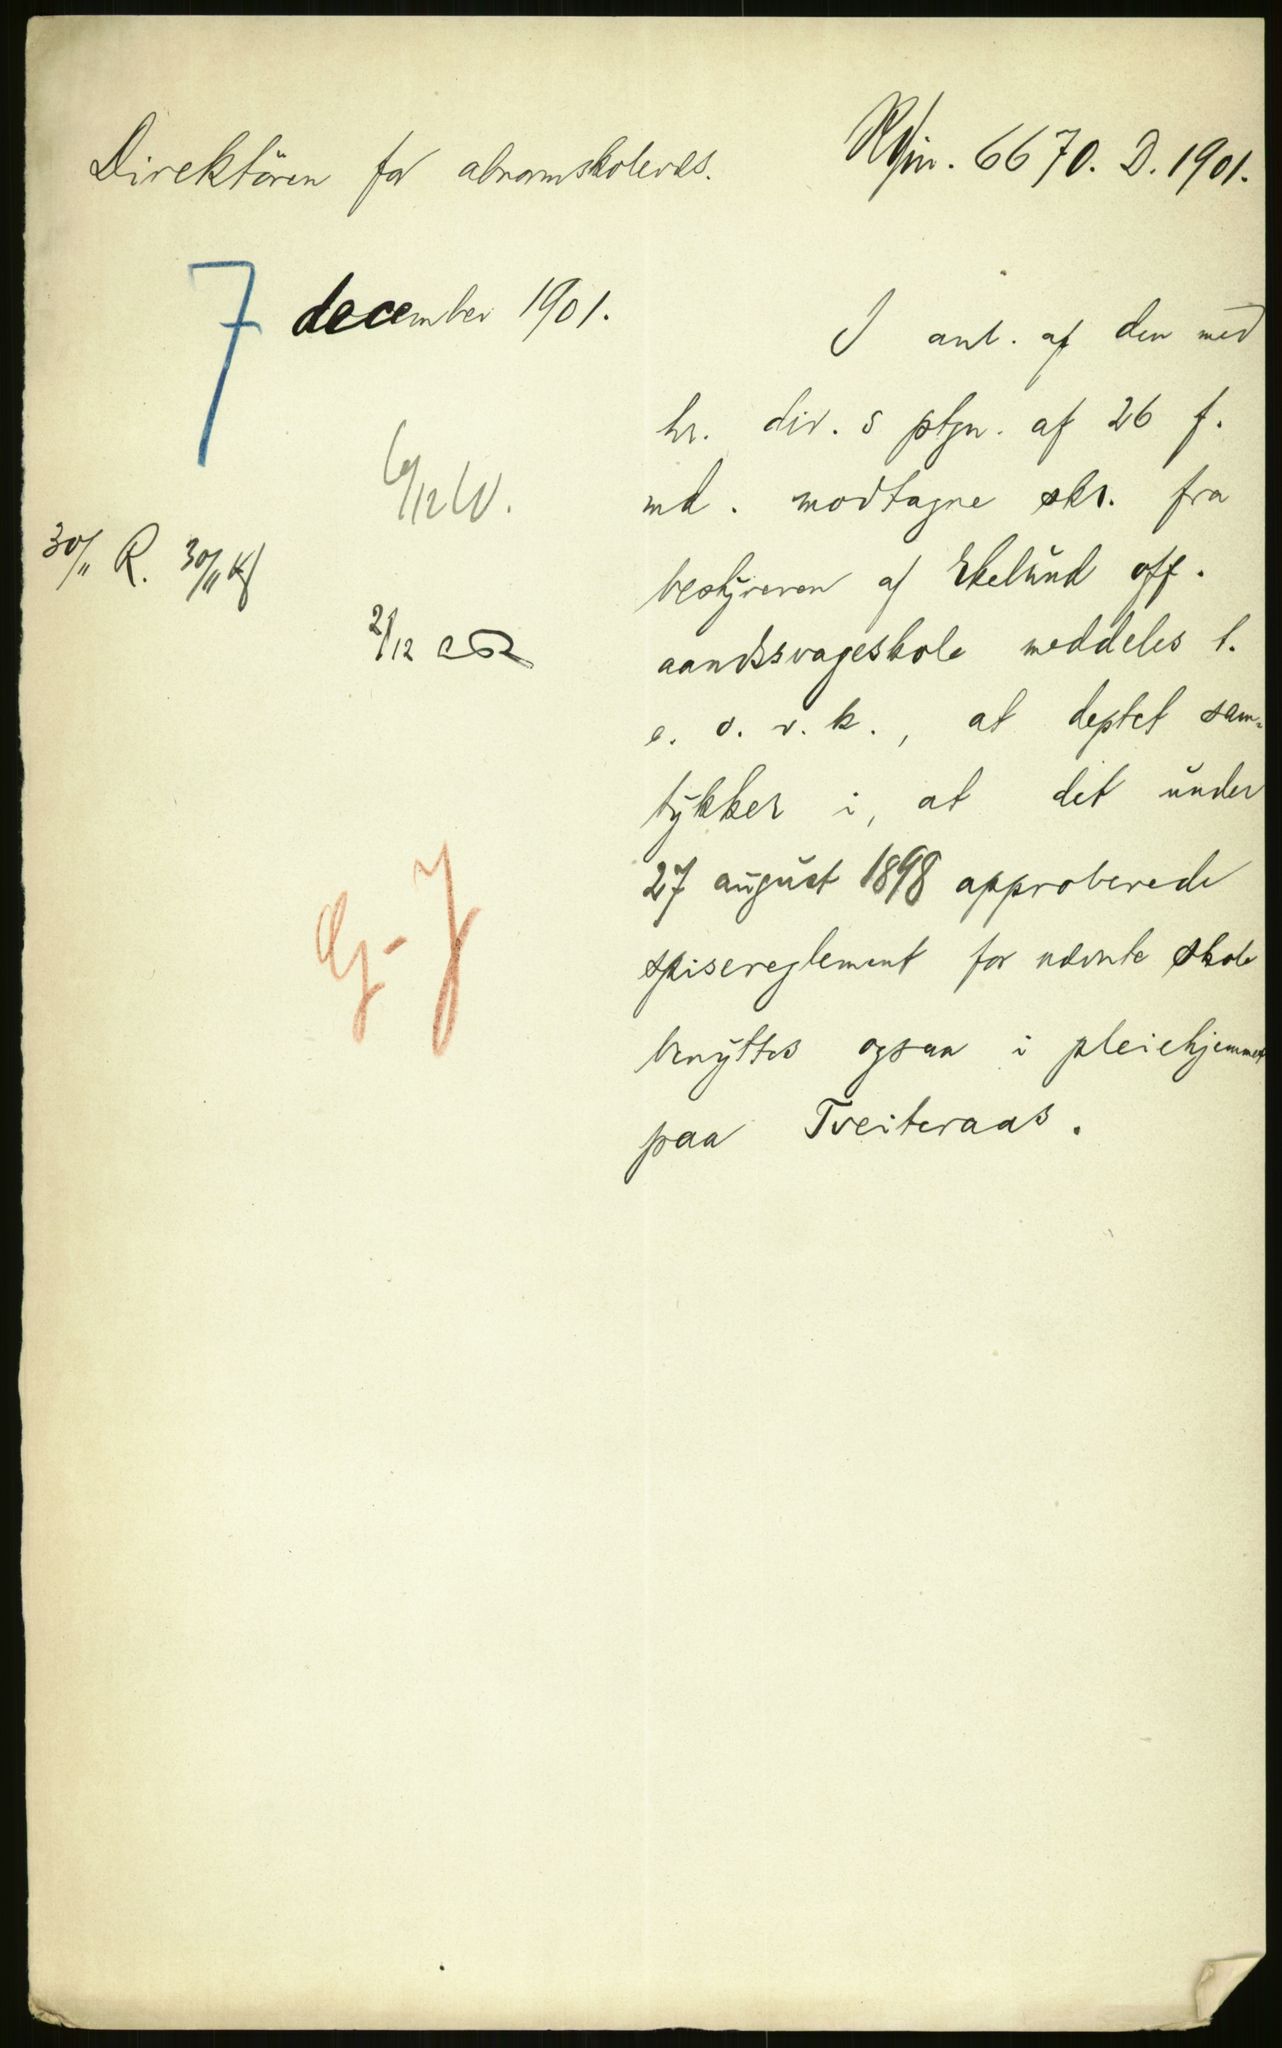 Direktören for abnormskolevæs.
Kdjnr. 6670. D. 1901.
7 december 1901.
6/12 W.
30/11 R. 30/11 Kf
2/12
G-J
I anl. af den med
hr. dir.s ptgn. af 26 f.
md. modtagne skr. fra
bestyreren af Ekelund off.
aandssvageskole meddeles t.
e. o. v. b., at deptet sam-
tykker i, at det under
27 august 1898 approberede
spisereglement for nævnte skole
benyttes ogsaa i pleiehjemmet
paa Tveiteraas.